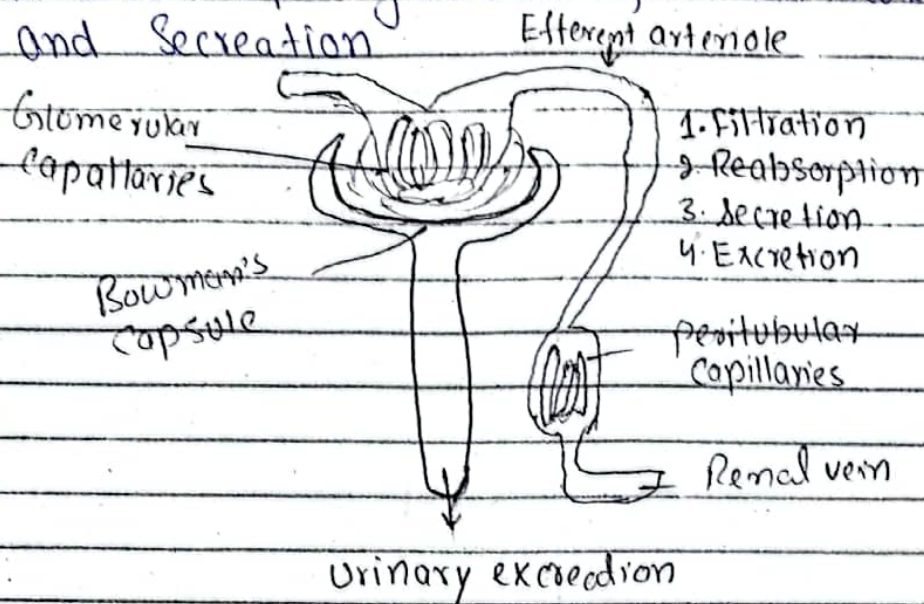 and Secreation
Efferent arteriole
Glomerular
Capallaries
1. Filtration
2. Reabsorption
3. Secretion
4. Excretion
Bowman's
Capsule
Peritubular
Capillaries
Renal vein
Urinary excreadion